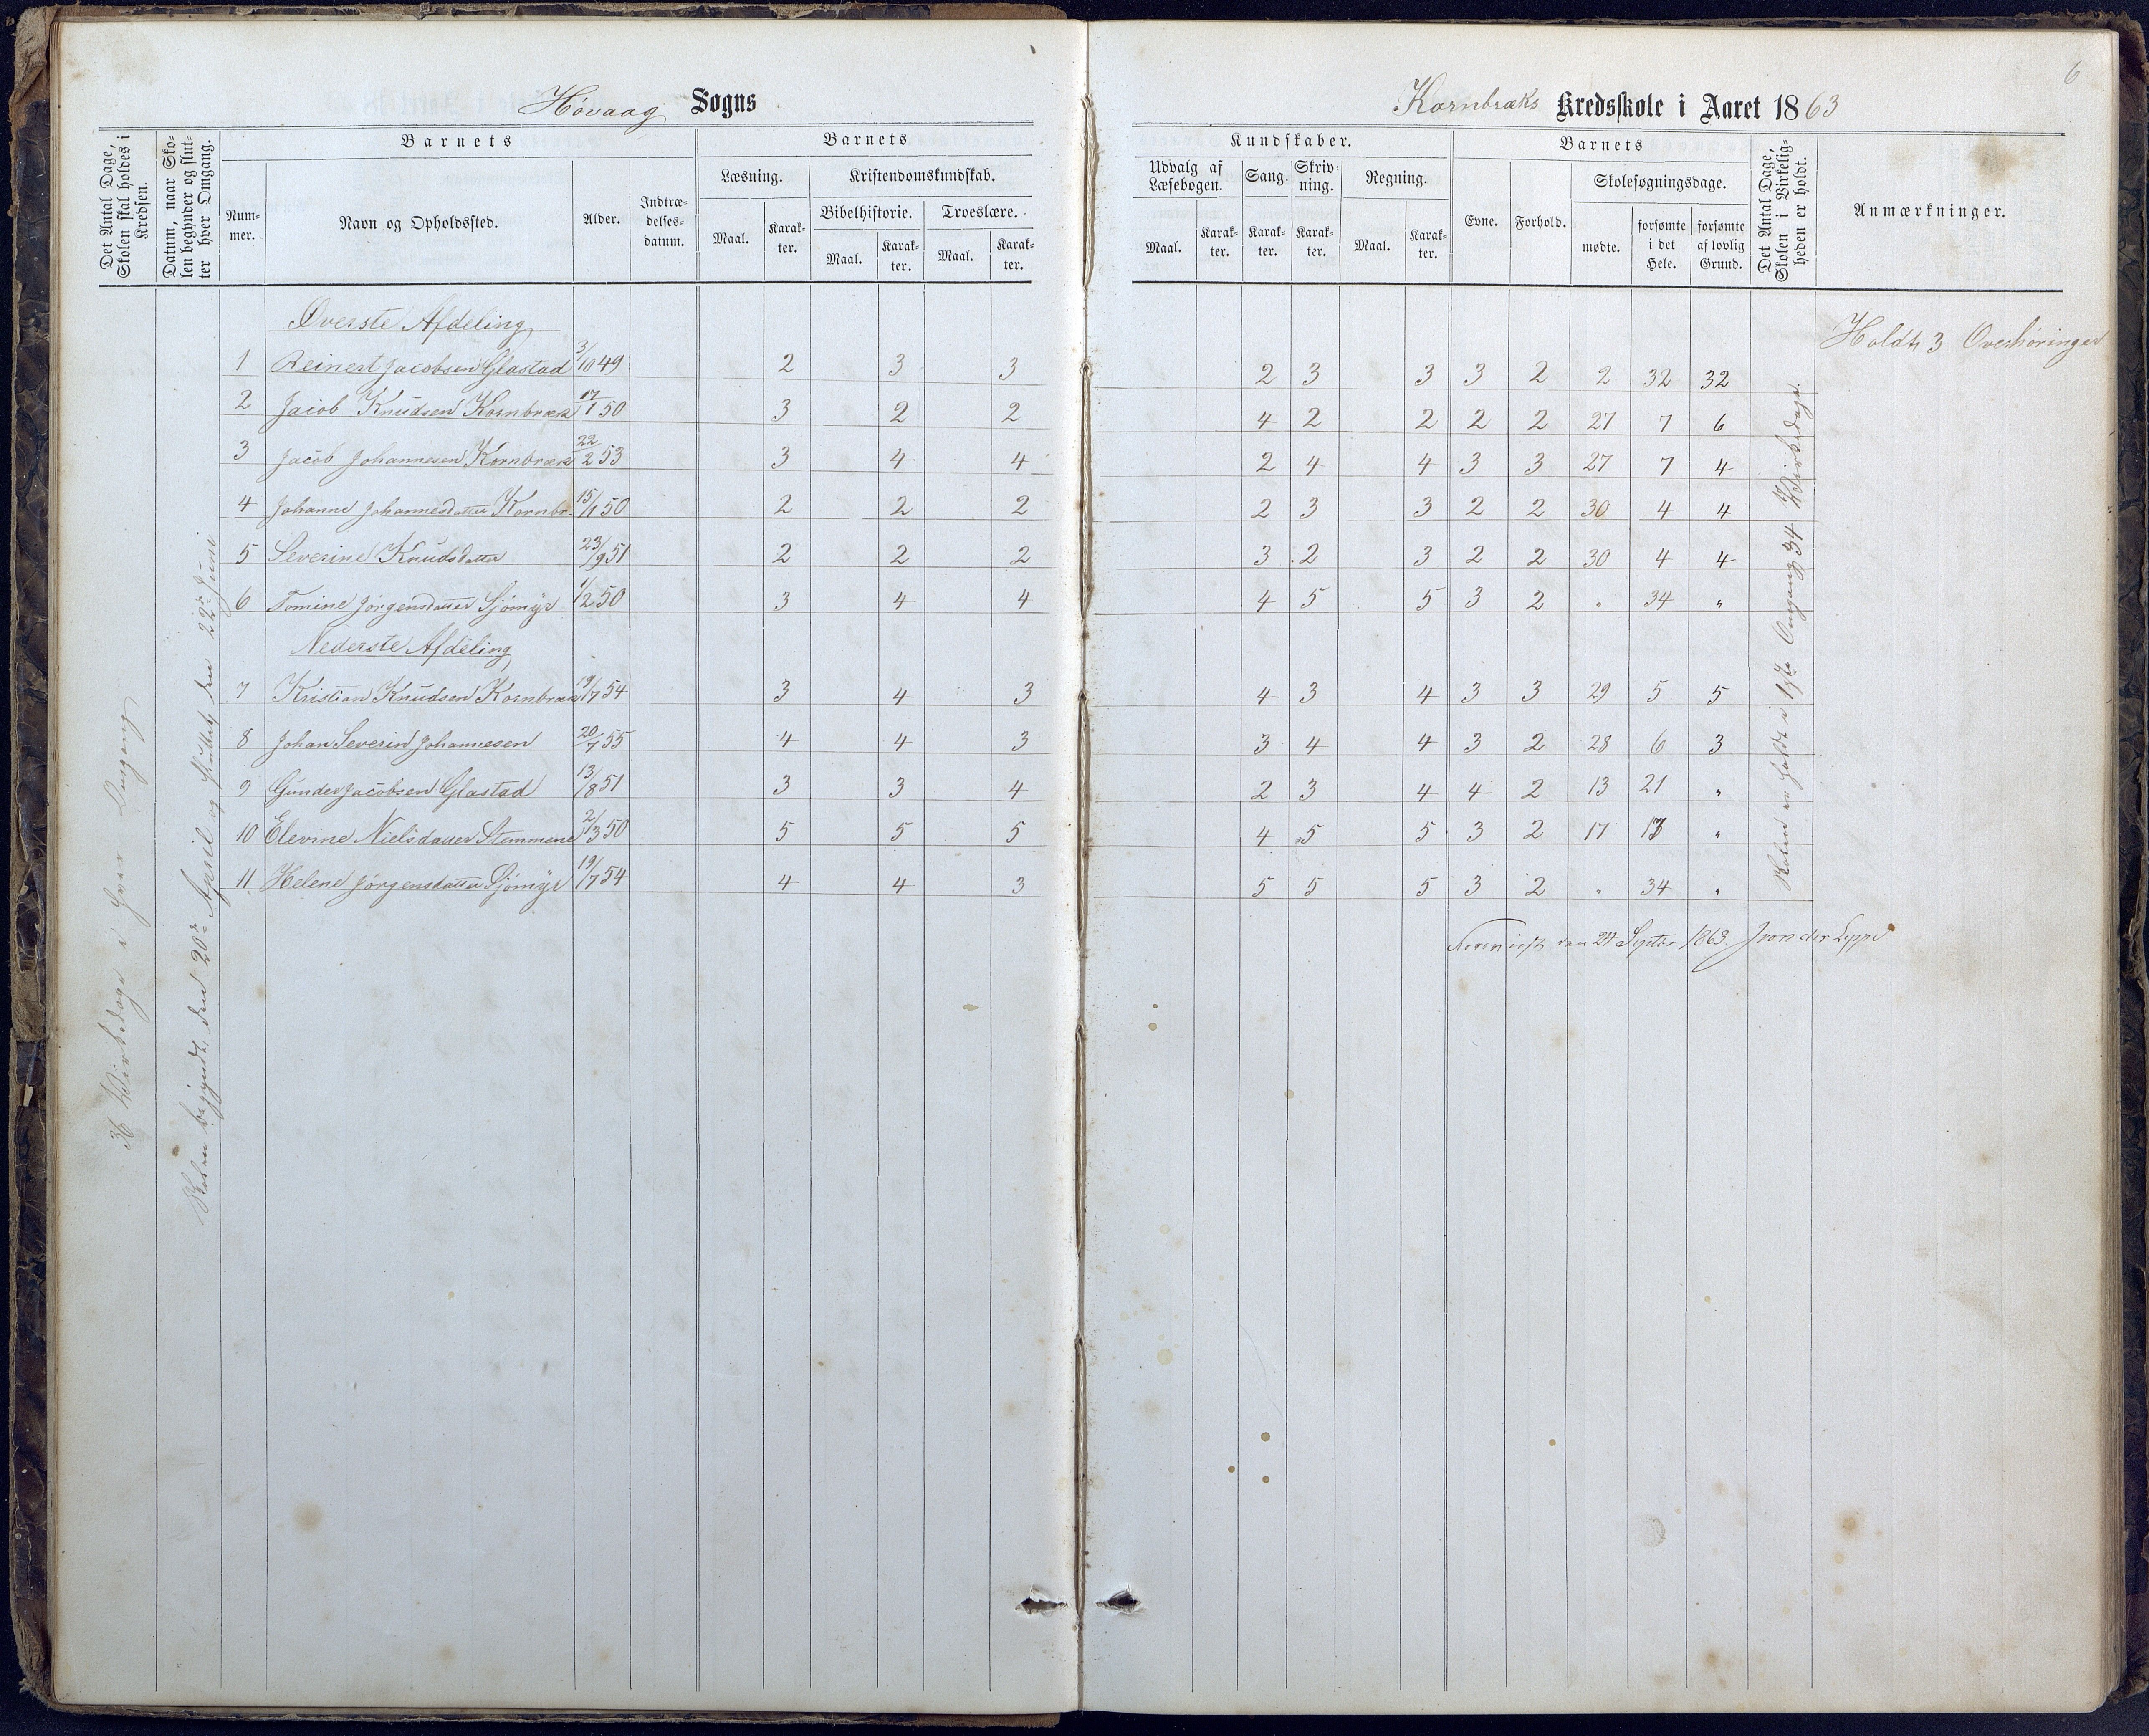 Høvaag Sogns
Kornbræks Kredsskole i Aaret 1863
6
Det Antal Dage, Skolen skal holdes i Kredsen.
Datum, naar Skolen begynder og slutter hver Omgang.
Barnets
Nummer.
Navn og Opholdssted.
Alder.
Indtrædelsesdatum.
Barnets
Læsning.
Maal.
Karakter.
Kristendomskundskab.
Bibelhistorie.
Maal.
Karakter.
Troeslære.
Maal.
Karakter.
Kundskaber.
Udvalg af Læsebogen.
Maal.
Karakter.
Sang.
Karakter.
Skrivning.
Karakter.
Regning.
Maal.
Karakter.
Barnets
Evne.
Forhold.
Skolesøgningsdage.
mødte.
forsømte i det Hele.
forsømte af lovlig Grund.
Det Antal Dage, Skolen i Virkeligheden er holdt.
Anmærkninger.
36 Virkedage i hver Omgang
Skolen begyndt den 20de April og sluttet den 22de Juni
Øverste Afdeling
Holdt 3 Overhøringer
1 Reinert Jacobsen Glastad 3/10 49 2 3 3 2 3 3 3 2 2 32 32
2 Jacob Knudsen Kornbræk 17/1 50 3 2 2 4 2 2 2 2 27 7 6
3 Jacob Johannesen Kornbræk 22/2 53 3 4 4 2 4 4 3 3 27 7 4
4 Johanne Johannesdatter Kornbr. 15/1 50 2 2 2 2 3 3 2 2 30 4 4
5 Severine Knudsdatter 23/9 51 2 2 2 3 2 3 2 2 30 4 4
6 Tomine Jørgensdatter Sjømyr 1/2 50 3 4 4 4 5 5 3 2 " 34 "
Nederste Afdeling
7 Kristian Knudsen Kornbræk 19/7 54 3 4 3 4 3 4 3 3 29 5 5
8 Johan Severin Johannesen 20/7 55 4 4 3 3 4 4 3 2 28 6 3
9 Gunder Jacobsen Glastad 13/8 51 3 3 4 2 3 4 4 2 13 21 "
10 Elevine Nielsdatter Stemmene 2/3 50 5 5 5 4 5 5 3 2 17 17 "
11 Helene Jørgensdatter Sjømyr 19/7 54 4 4 3 5 5 5 3 2 " 34 "
Skolen er holdt i 1ste Omgang 34 Virkedage.
den 24 Septbr 1863. J von der Lippe